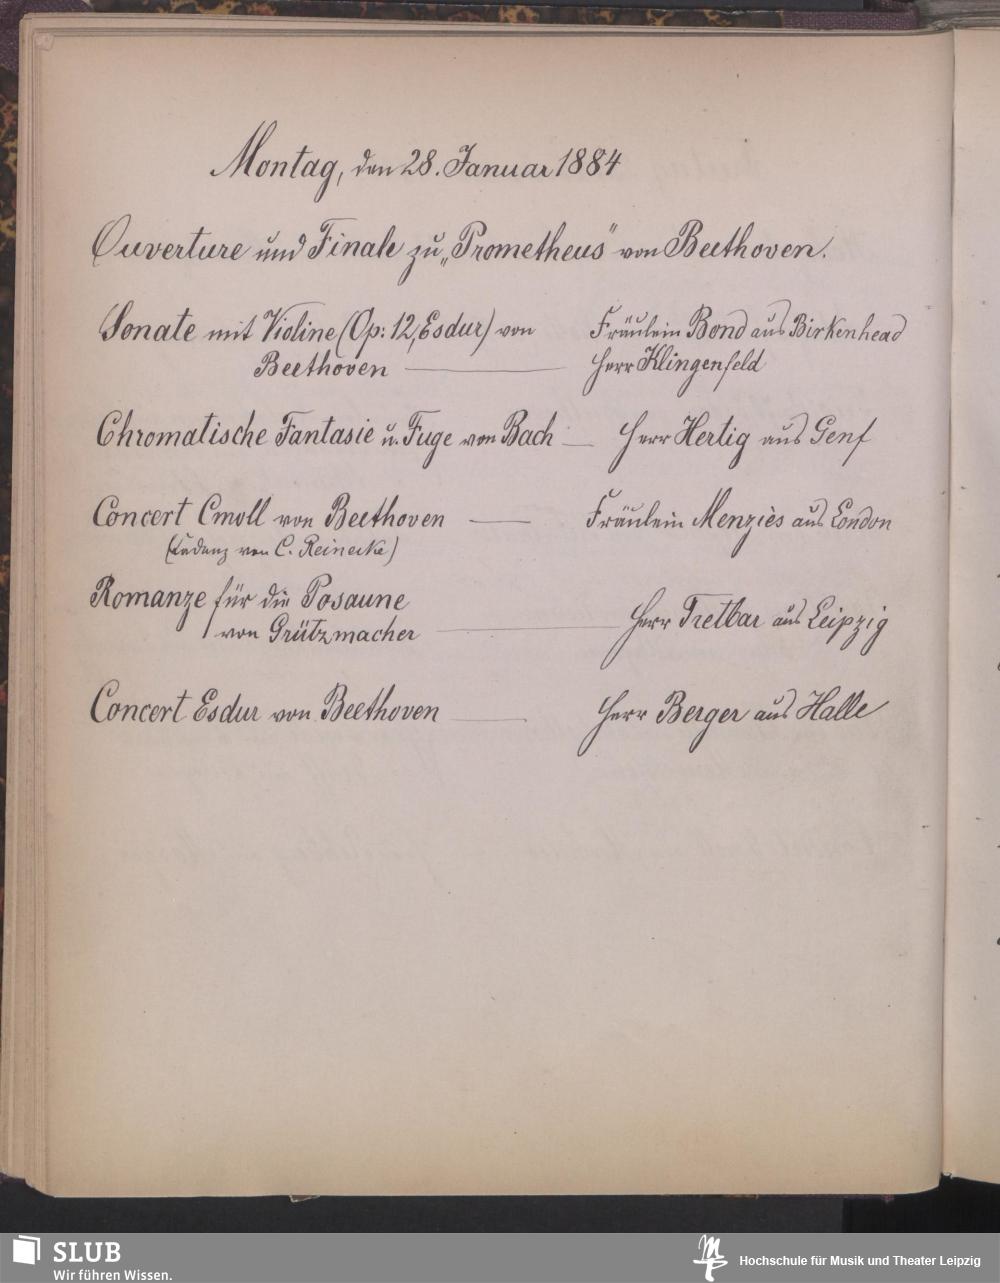 Montag, den 28. Januar 1884
Ouverture und Finale zu „Prometheus" von Beethoven.
Sonate mit Violine (Op: 12, Esdur) von Fräulein Bond aus Birkenhead
Beethoven — Herr Klingenfeld
Chromatische Fantasie u. Fuge von Bach — Herr Hertig aus Genf
Concert Cmoll von Beethoven — Fräulein Menzies aus London
(Cadenz von C. Reinecke)
Romanze für die Posaune
von Grützmacher — Herr Tretbar aus Leipzig
Concert Esdur von Beethoven — Herr Berger aus Halle
SLUB
Wir führen Wissen.
Hochschule für Musik und Theater Leipzig